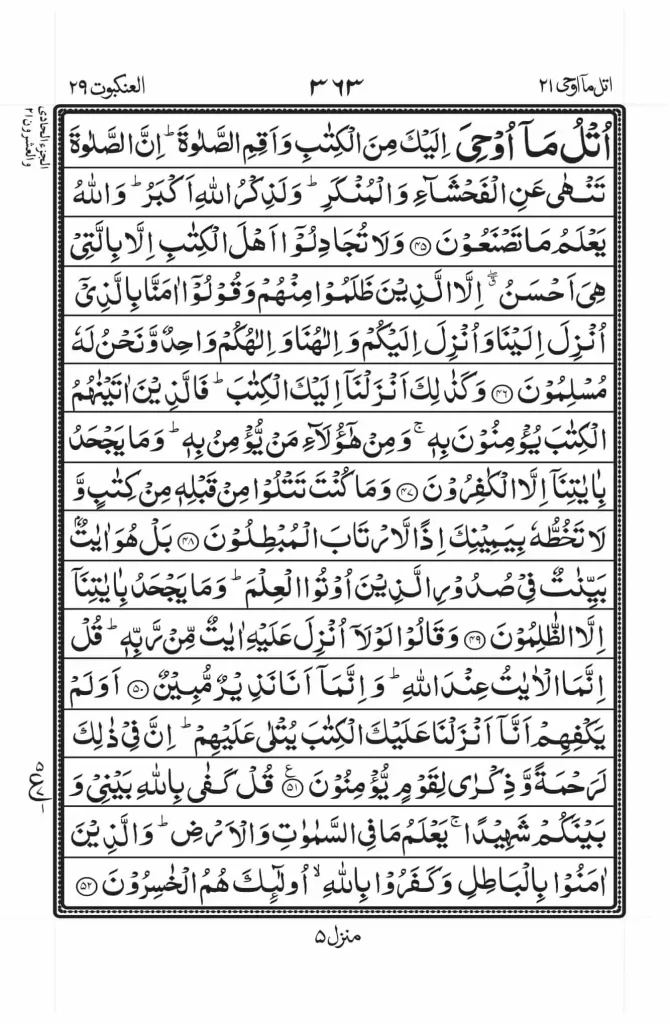 اتل مآ اوحی ۲۱ ۳۶۳ العنكبوت ۲۹
الجزء الحادی
والعشرون ۲۱
اُتْلُ مَاۤ اُوْحِیَ اِلَیْكَ مِنَ الْكِتٰبِ وَاَقِمِ الصَّلٰوةَ ؕ اِنَّ الصَّلٰوةَ
تَنْهٰی عَنِ الْفَحْشَآءِ وَالْمُنْكَرِ ؕ وَلَذِكْرُ اللّٰهِ اَكْبَرُ ؕ وَاللّٰهُ
یَعْلَمُ مَا تَصْنَعُوْنَ ﴿۴۵﴾ وَلَا تُجَادِلُوْۤا اَهْلَ الْكِتٰبِ اِلَّا بِالَّتِیْ
هِیَ اَحْسَنُ ۖۗ اِلَّا الَّذِیْنَ ظَلَمُوْا مِنْهُمْ وَقُوْلُوْۤا اٰمَنَّا بِالَّذِیْۤ
اُنْزِلَ اِلَیْنَا وَاُنْزِلَ اِلَیْكُمْ وَاِلٰهُنَا وَاِلٰهُكُمْ وَاحِدٌ وَّنَحْنُ لَهٗ
مُسْلِمُوْنَ ﴿۴۶﴾ وَكَذٰلِكَ اَنْزَلْنَاۤ اِلَیْكَ الْكِتٰبَ ؕ فَالَّذِیْنَ اٰتَیْنٰهُمُ
الْكِتٰبَ یُؤْمِنُوْنَ بِهٖ ۚ وَمِنْ هٰۤؤُلَآءِ مَنْ یُّؤْمِنُ بِهٖ ؕ وَمَا یَجْحَدُ
بِاٰیٰتِنَاۤ اِلَّا الْكٰفِرُوْنَ ﴿۴۷﴾ وَمَا كُنْتَ تَتْلُوْا مِنْ قَبْلِهٖ مِنْ كِتٰبٍ وَّ
لَا تَخُطُّهٗ بِیَمِیْنِكَ اِذًا لَّارْتَابَ الْمُبْطِلُوْنَ ﴿۴۸﴾ بَلْ هُوَ اٰیٰتٌۢ
بَیِّنٰتٌ فِیْ صُدُوْرِ الَّذِیْنَ اُوْتُوا الْعِلْمَ ؕ وَمَا یَجْحَدُ بِاٰیٰتِنَاۤ
اِلَّا الظّٰلِمُوْنَ ﴿۴۹﴾ وَقَالُوْا لَوْلَاۤ اُنْزِلَ عَلَیْهِ اٰیٰتٌ مِّنْ رَّبِّهٖ ؕ قُلْ
اِنَّمَا الْاٰیٰتُ عِنْدَ اللّٰهِ ؕ وَاِنَّمَاۤ اَنَا نَذِیْرٌ مُّبِیْنٌ ﴿۵۰﴾ اَوَلَمْ
یَكْفِهِمْ اَنَّاۤ اَنْزَلْنَا عَلَیْكَ الْكِتٰبَ یُتْلٰی عَلَیْهِمْ ؕ اِنَّ فِیْ ذٰلِكَ
لَرَحْمَةً وَّذِكْرٰی لِقَوْمٍ یُّؤْمِنُوْنَ ﴿۵۱﴾ ع قُلْ كَفٰی بِاللّٰهِ بَیْنِیْ وَ
بَیْنَكُمْ شَهِیْدًا ۚ یَعْلَمُ مَا فِی السَّمٰوٰتِ وَالْاَرْضِ ؕ وَالَّذِیْنَ
اٰمَنُوْا بِالْبَاطِلِ وَكَفَرُوْا بِاللّٰهِ ۙ اُولٰٓئِكَ هُمُ الْخٰسِرُوْنَ ﴿۵۲﴾
منزل ۵